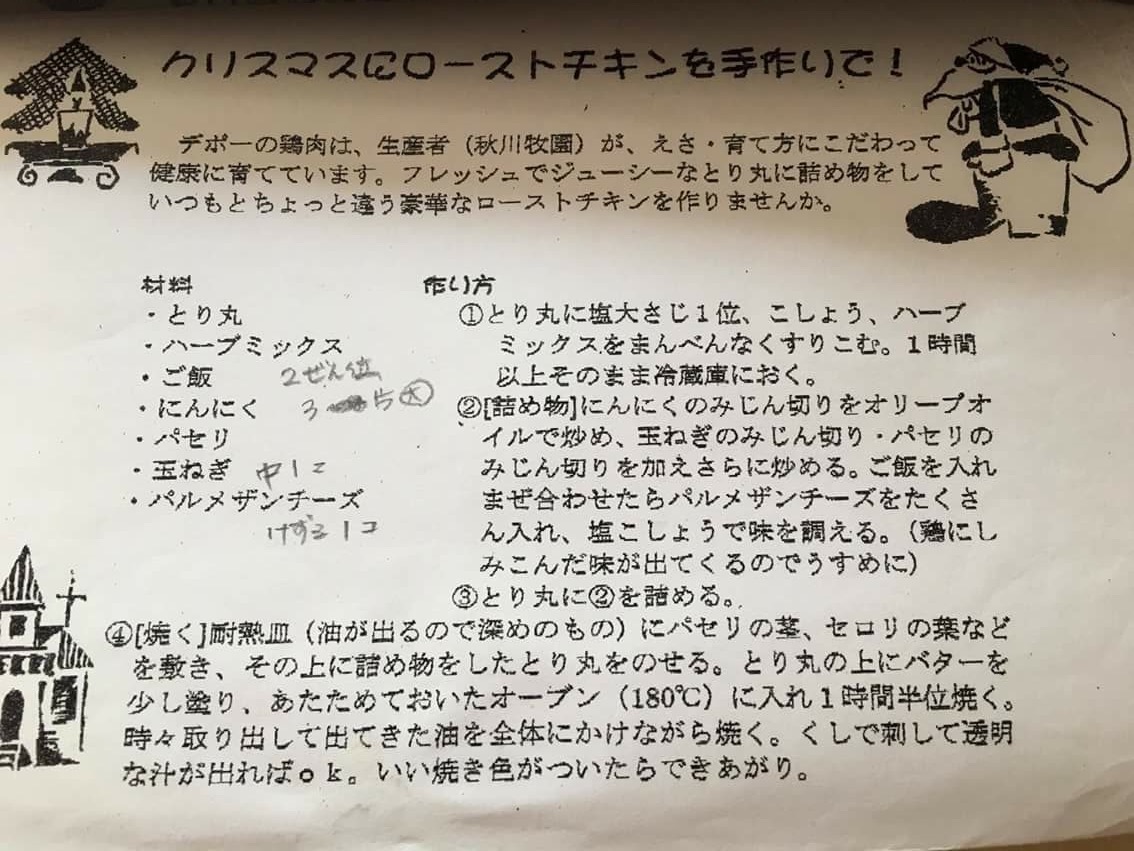 クリスマスにローストチキンを手作りで！
デポーの鶏肉は、生産者（秋川牧園）が、えさ・育て方にこだわって
健康に育てています。フレッシュでジューシーなとり丸に詰め物をして
いつもとちょっと違う豪華なローストチキンを作りませんか。
材料
・とり丸
・ハーブミックス
・ご飯 2ぜん位
・にんにく 3片大
・パセリ
・玉ねぎ 中1コ
・パルメザンチーズ
けずる1コ
作り方
①とり丸に塩大さじ１位、こしょう、ハーブ
ミックスをまんべんなくすりこむ。１時間
以上そのまま冷蔵庫におく。
②[詰め物]にんにくのみじん切りをオリーブオ
イルで炒め、玉ねぎのみじん切り・パセリの
みじん切りを加えさらに炒める。ご飯を入れ
まぜ合わせたらパルメザンチーズをたくさ
ん入れ、塩こしょうで味を調える。（鶏にし
みこんだ味が出てくるのでうすめに）
③とり丸に②を詰める。
④[焼く]耐熱皿（油が出るので深めのもの）にパセリの茎、セロリの葉など
を敷き、その上に詰め物をしたとり丸をのせる。とり丸の上にバターを
少し塗り、あたためておいたオーブン（180℃）に入れ１時間半位焼く。
時々取り出して出てきた油を全体にかけながら焼く。くしで刺して透明
な汁が出ればｏｋ。いい焼き色がついたらできあがり。